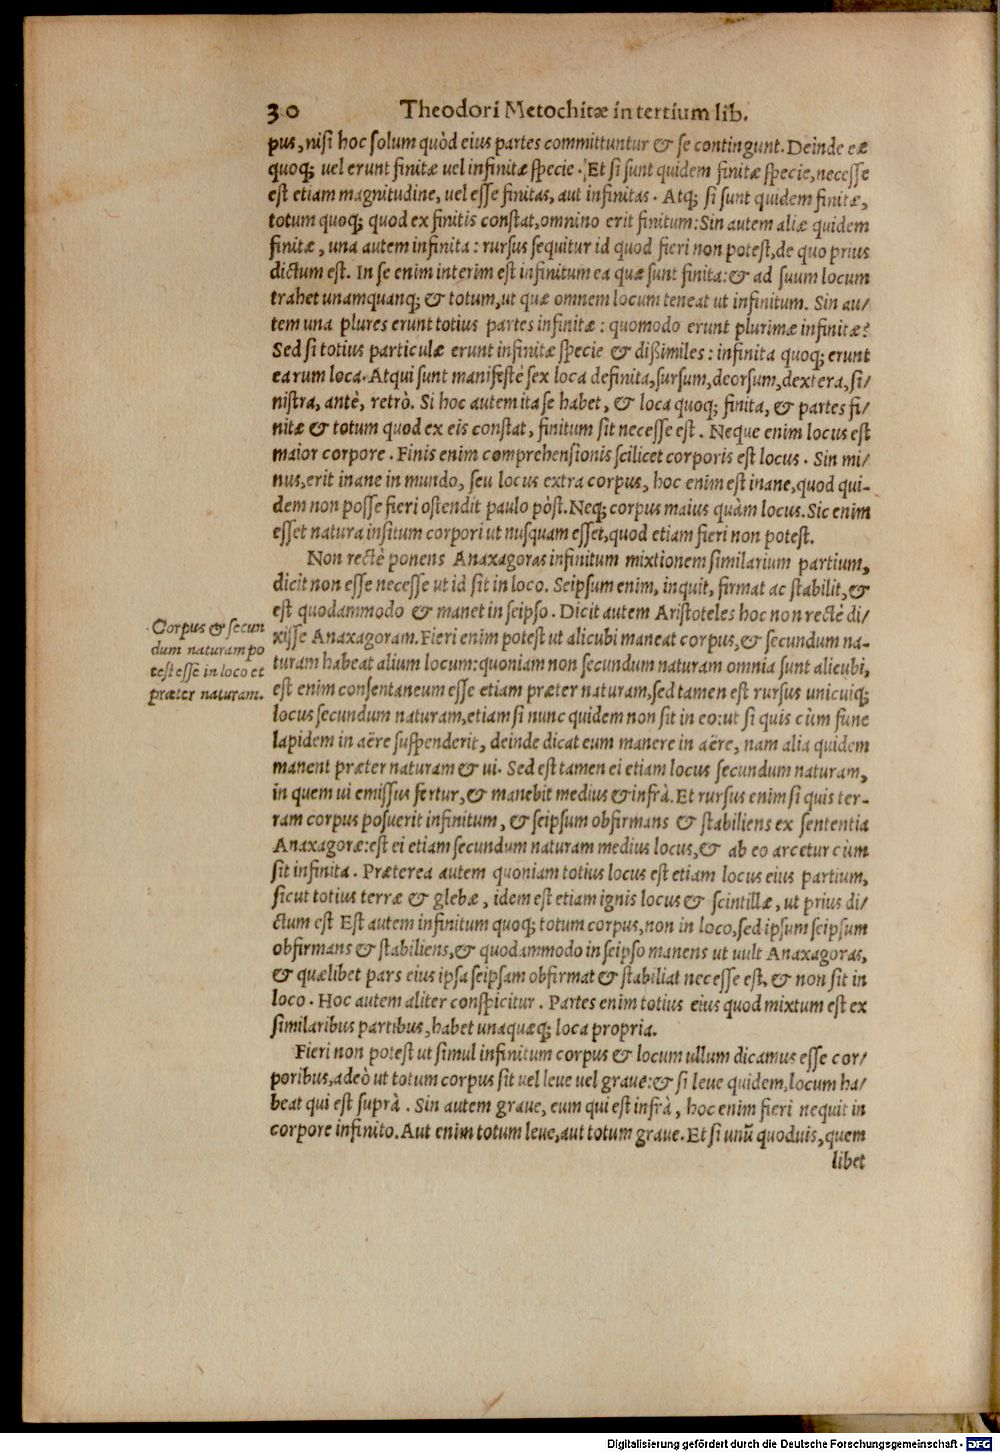 30 Theodori Metochitæ in tertium lib.
pus, nisi hoc solum quòd eius partes committuntur & se contingunt. Deinde eæ
quoq; uel erunt finitæ uel infinitæ specie. Et si sunt quidem finitæ specie, necesse
est etiam magnitudine, uel esse finitas, aut infinitas. Atq; si sunt quidem finitæ,
totum quoq; quod ex finitis constat, omnino erit finitum: Sin autem aliæ quidem
finitæ, una autem infinita: rursus sequitur id quod fieri non potest, de quo prius
dictum est. In se enim interim est infinitum ea quæ sunt finita: & ad suum locum
trahet unamquanq; & totum, ut quæ omnem locum teneat ut infinitum. Sin au/
tem una plures erunt totius partes infinitæ: quomodo erunt plurimæ infinitæ?
Sed si totius particulæ erunt infinitæ specie & dißimiles: infinita quoq; erunt
earum loca. Atqui sunt manifestè sex loca definita, sursum, deorsum, dextera, si/
nistra, antè, retrò. Si hoc autem ita se habet, & loca quoq; finita, & partes fi/
nitæ & totum quod ex eis constat, finitum sit necesse est. Neque enim locus est
maior corpore. Finis enim comprehensionis scilicet corporis est locus. Sin mi/
nus, erit inane in mundo, seu locus extra corpus, hoc enim est inane, quod qui-
dem non posse fieri ostendit paulo pòst. Neq; corpus maius quàm locus. Sic enim
esset natura insitum corpori ut nusquam esset, quod etiam fieri non potest.
Non rectè ponens Anaxagoras infinitum mixtionem similarium partium,
dicit non esse necesse ut id sit in loco. Seipsum enim, inquit, firmat ac stabilit, &
est quodammodo & manet in seipso. Dicit autem Aristoteles hoc non rectè di/
xisse Anaxagoram. Fieri enim potest ut alicubi maneat corpus, & secundum na-
turam habeat alium locum: quoniam non secundum naturam omnia sunt alicubi,
est enim consentaneum esse etiam præter naturam, sed tamen est rursus unicuiq;
locus secundum naturam, etiam si nunc quidem non sit in eo: ut si quis cùm fune
lapidem in aëre suspenderit, deinde dicat eum manere in aëre, nam alia quidem
manent præter naturam & ui. Sed est tamen ei etiam locus secundum naturam,
in quem ui emissus fertur, & manebit medius & infrà. Et rursus enim si quis ter-
ram corpus posuerit infinitum, & seipsum obfirmans & stabiliens ex sententia
Anaxagoræ: est ei etiam secundum naturam medius locus, & ab eo arcetur cùm
sit infinita. Præterea autem quoniam totius locus est etiam locus eius partium,
sicut totius terræ & glebæ, idem est etiam ignis locus & scintillæ, ut prius di/
ctum est Est autem infinitum quoq; totum corpus, non in loco, sed ipsum seipsum
obfirmans & stabiliens, & quodammodo in seipso manens ut uult Anaxagoras,
& quælibet pars eius ipsa seipsam obfirmat & stabiliat necesse est, & non sit in
loco. Hoc autem aliter conspicitur. Partes enim totius eius quod mixtum est ex
similaribus partibus, habet unaquæq; loca propria.
Fieri non potest ut simul infinitum corpus & locum ullum dicamus esse cor/
poribus, adeò ut totum corpus sit uel leue uel graue: & si leue quidem, locum ha/
beat qui est suprà. Sin autem graue, eum qui est infrà, hoc enim fieri nequit in
corpore infinito. Aut enim totum leue, aut totum graue. Et si unũ quoduis, quem
libet
Corpus & secun
dum naturam po
test esse in loco et
præter naturam.
Digitalisierung gefördert durch die Deutsche Forschungsgemeinschaft - DFG